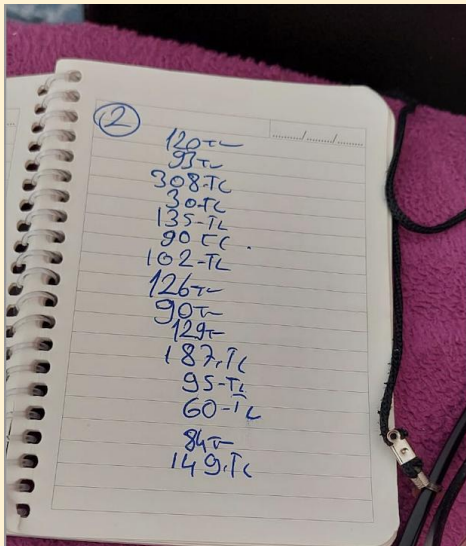 2
120TL
93TL
308.TL
30.TL
135-TL
90 TL.
102-TL
126TL
90TL
129TL
187.TL
95-TL
60-TL
84TL
149.TL